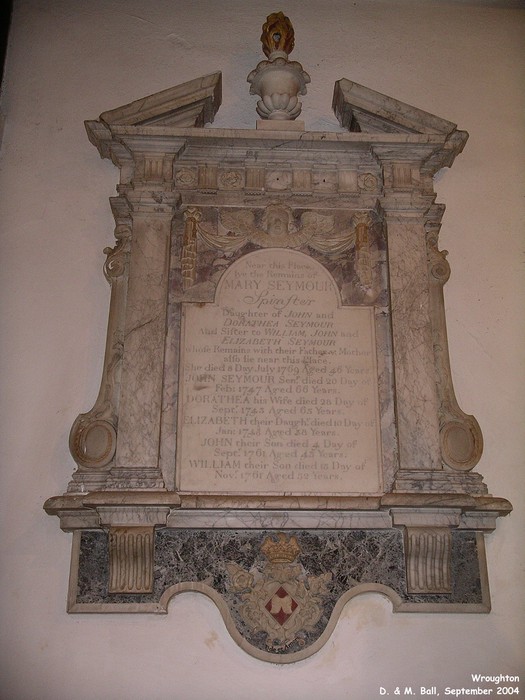 Near this Place
lie the Remains of
MARY SEYMOUR
Spinster
Daughter of JOHN and
DORATHEA SEYMOUR
And Sister to WILLIAM, JOHN and
ELIZABETH SEYMOUR
whose Remains with their Father & Mother
also lie near this Place.
She died 8 Day July 1769 Aged 46 Years
JOHN SEYMOUR Senr. died 20 Day of
Febr. 1747 Aged 66 Years.
DORATHEA his Wife died 28 Day of
Sept. 1742 Aged 63 Years.
ELIZABETH their Daughr. died 10 Day of
Jan: Aged Years.
JOHN their Son died 4 Day of
Sept. 1761 Aged 45 Years.
WILLIAM their Son died 18 Day of
Nov. 1761 Aged Years.
Wroughton
D. & M. Ball, September 2004